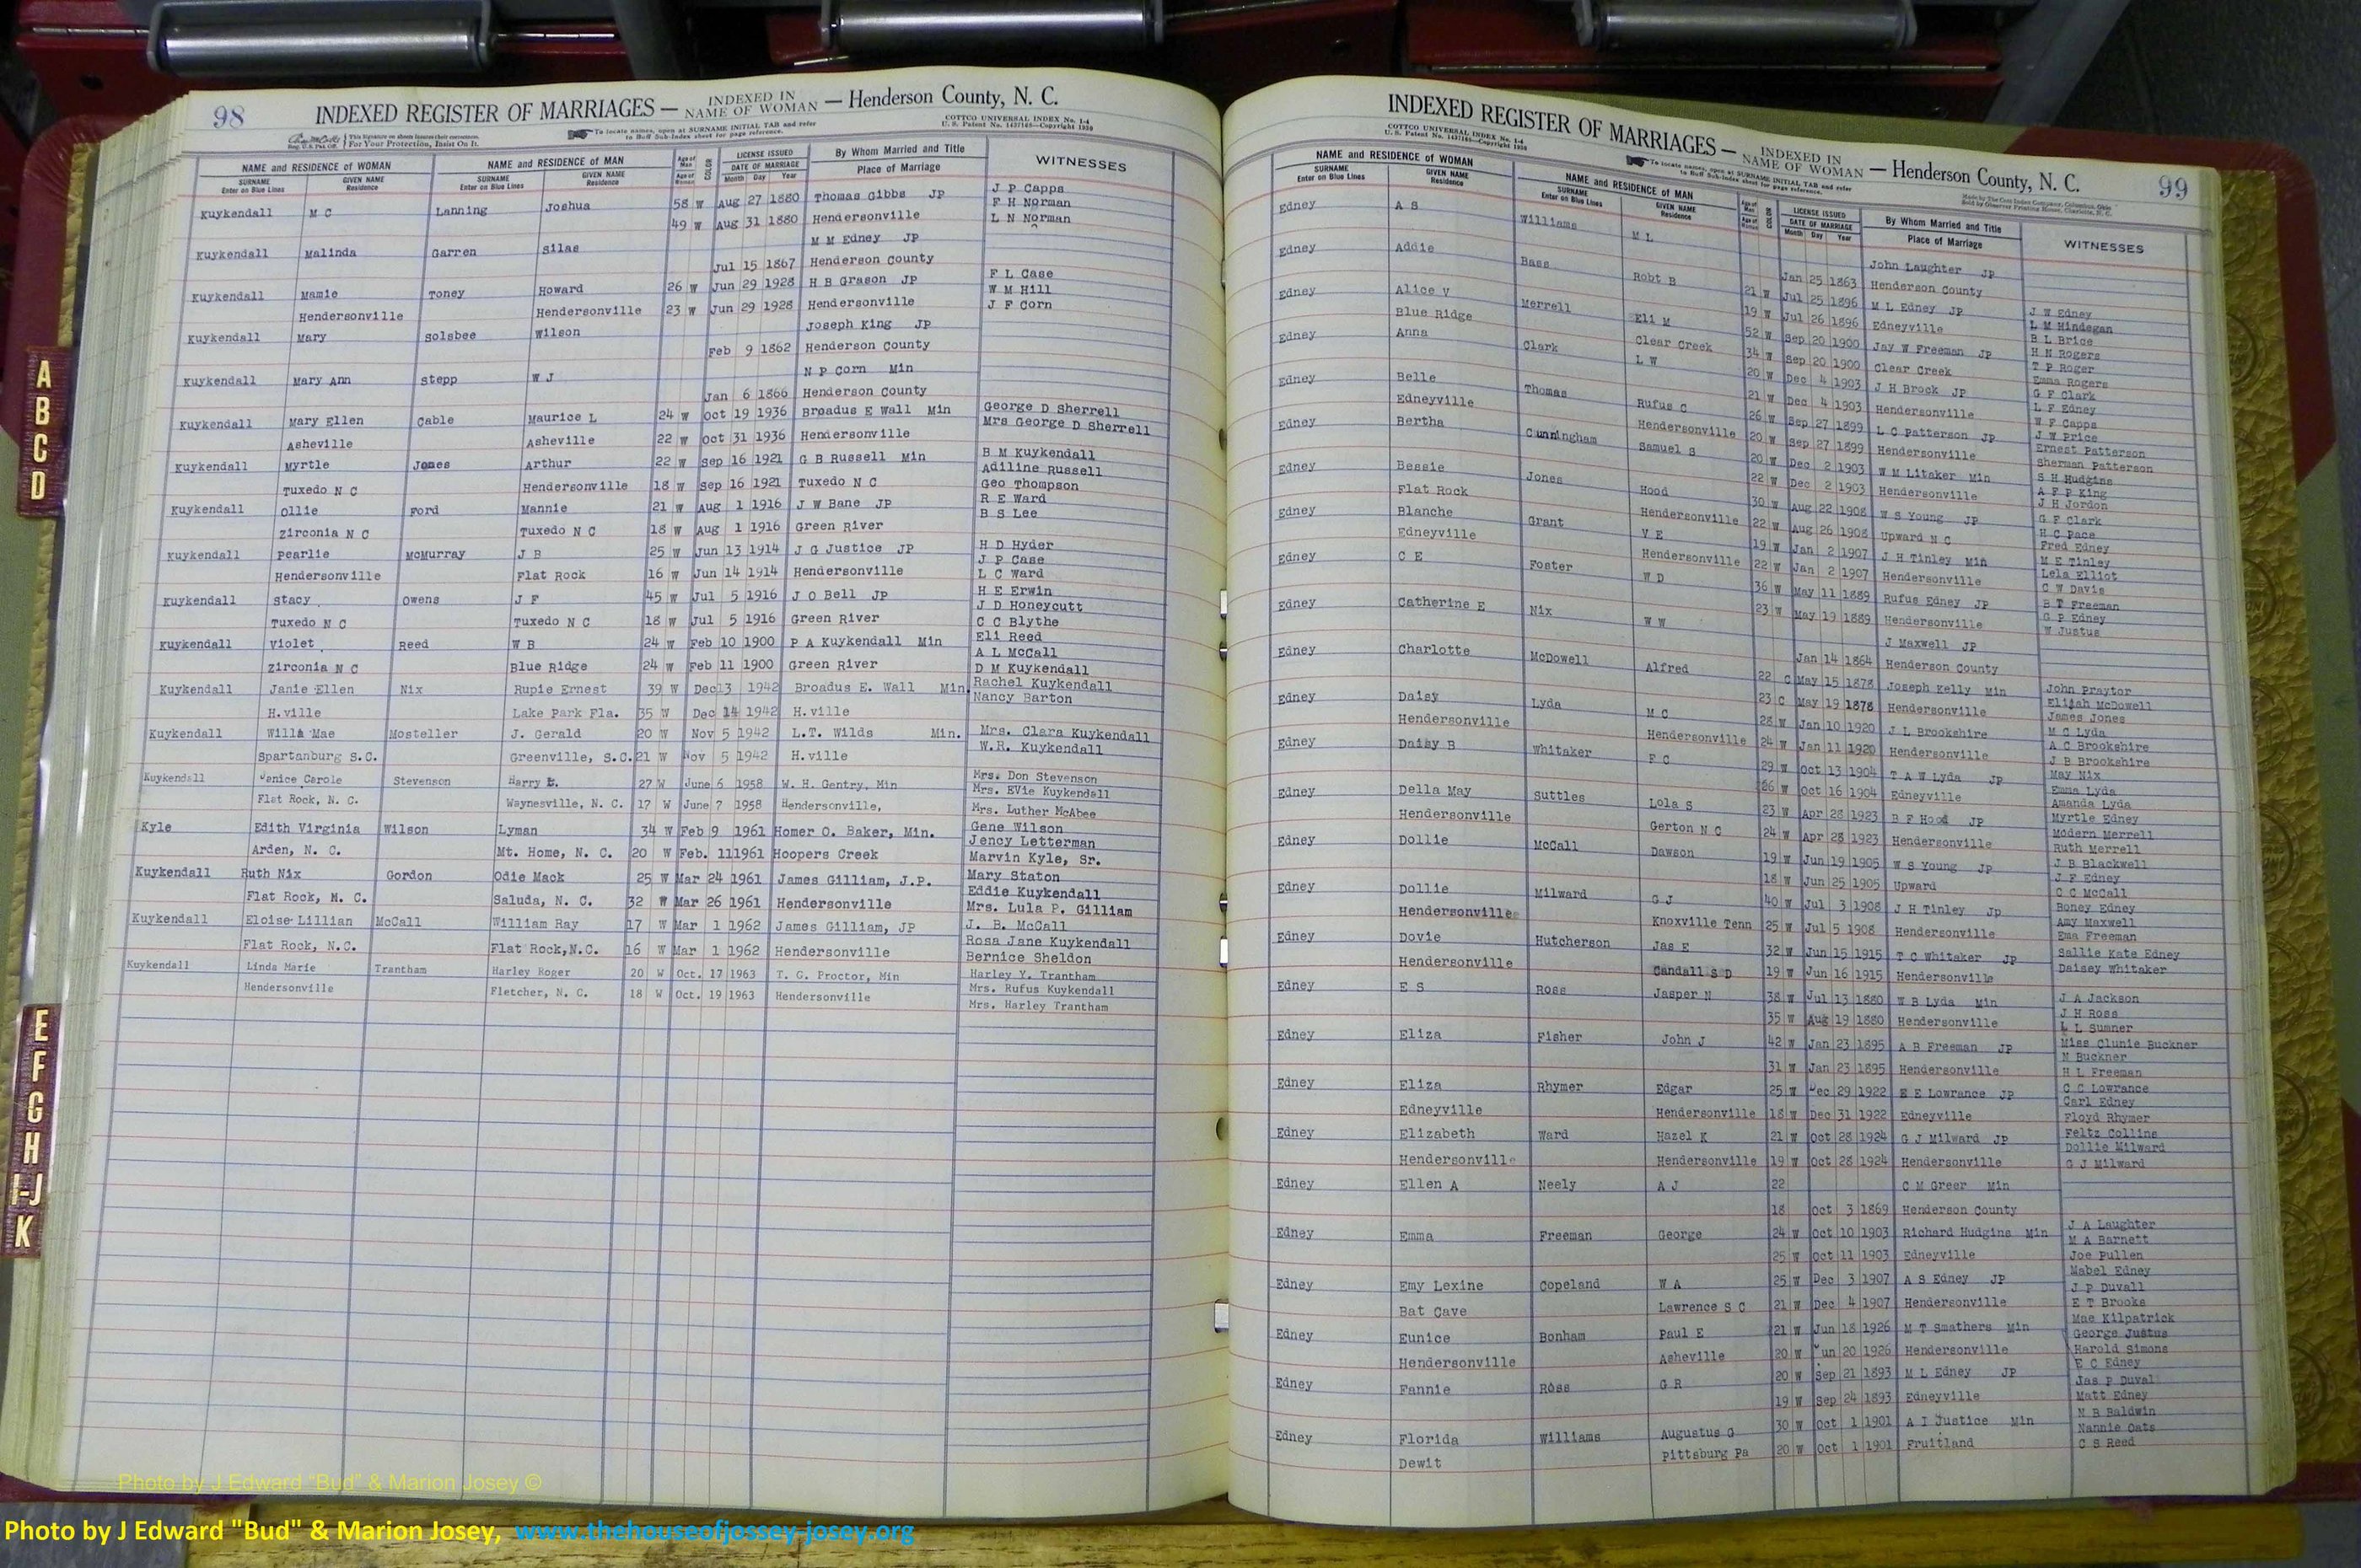 98
INDEXED REGISTER OF MARRIAGES — INDEXED IN NAME OF WOMAN — Henderson County, N. C.
This Signature on sheets insures their correctness.
Reg. U.S. Pat. Off. For Your Protection, Insist On It.
To locate names, open at SURNAME INITIAL TAB and refer
to Buff Sub-Index sheet for page reference.
COTTCO UNIVERSAL INDEX No. 1-4
U. S. Patent No. 1437166—Copyright 1930
NAME and RESIDENCE OF WOMAN NAME and RESIDENCE OF MAN Age of Man COLOR LICENSE ISSUED By Whom Married and Title WITNESSES
SURNAME Enter on Blue Lines GIVEN NAME Residence SURNAME Enter on Blue Lines GIVEN NAME Residence Age of Woman DATE OF MARRIAGE Month Day Year Place of Marriage
Kuykendall M C Lanning Joshua 58 W Aug 27 1880 Thomas Gibbs JP J P Capps
F H Norman
49 W Aug 31 1880 Hendersonville L N Norman
Kuykendall Malinda Garren Silas M M Edney JP
Jul 15 1867 Henderson County
Kuykendall Mamie Toney Howard 26 W Jun 29 1928 H B Grason JP F L Case
W M Hill
Hendersonville Hendersonville 23 W Jun 29 1928 Hendersonville J F Corn
Kuykendall Mary Solsbee Wilson Joseph King JP
Feb 9 1862 Henderson County
Kuykendall Mary Ann Stepp W J N P Corn Min
Jan 6 1866 Henderson County
Kuykendall Mary Ellen Cable Maurice L 24 W Oct 19 1936 Broadus E Wall Min George D Sherrell
Mrs George D Sherrell
Asheville Asheville 22 W Oct 31 1936 Hendersonville
Kuykendall Myrtle Jones Arthur 22 W Sep 16 1921 G B Russell Min B M Kuykendall
Adiline Russell
Tuxedo N C Hendersonville 18 W Sep 16 1921 Tuxedo N C Geo Thompson
Kuykendall Ollie Ford Mannie 21 W Aug 1 1916 J W Bane JP R E Ward
B S Lee
Zirconia N C Tuxedo N C 18 W Aug 1 1916 Green River
Kuykendall Pearlie McMurray J B 25 W Jun 13 1914 J G Justice JP H D Hyder
J P Case
Hendersonville Flat Rock 16 W Jun 14 1914 Hendersonville L C Ward
Kuykendall Stacy Owens J F 45 W Jul 5 1916 J O Bell JP H E Erwin
J D Honeycutt
Tuxedo N C Tuxedo N C 18 W Jul 5 1916 Green River C C Blythe
Kuykendall Violet Reed W B 24 W Feb 10 1900 P A Kuykendall Min Eli Reed
A L McCall
Zirconia N C Blue Ridge 24 W Feb 11 1900 Green River D M Kuykendall
Kuykendall Janie Ellen Nix Rupie Ernest 39 W Dec 13 1942 Broadus E. Wall Min. Rachel Kuykendall
Nancy Barton
H.ville Lake Park Fla. 35 W Dec 14 1942 H.ville
Kuykendall Willa Mae Mosteller J. Gerald 20 W Nov 5 1942 L.T. Wilds Min. Mrs. Clara Kuykendall
W.R. Kuykendall
Spartanburg S.C. Greenville, S.C. 21 W Nov 5 1942 H.ville
Kuykendall Janice Carole Stevenson Harry E. 27 W June 6 1958 W. H. Gentry, Min Mrs. Don Stevenson
Mrs. Evie Kuykendall
Flat Rock, N. C. Waynesville, N. C. 17 W June 7 1958 Hendersonville, Mrs. Luther McAbee
Kyle Edith Virginia Wilson Lyman 34 W Feb 9 1961 Homer O. Baker, Min. Gene Wilson
Jency Letterman
Arden, N. C. Mt. Home, N. C. 20 W Feb. 11 1961 Hoopers Creek Marvin Kyle, Sr.
Kuykendall Ruth Nix Gordon Odie Mack 25 W Mar 24 1961 James Gilliam, J.P. Mary Staton
Eddie Kuykendall
Flat Rock, N. C. Saluda, N. C. 32 W Mar 26 1961 Hendersonville Mrs. Lula P. Gilliam
Kuykendall Eloise Lillian McCall William Ray 17 W Mar 1 1962 James Gilliam, JP J. B. McCall
Rosa Jane Kuykendall
Flat Rock, N.C. Flat Rock,N.C. 16 W Mar 1 1962 Hendersonville Bernice Sheldon
Kuykendall Linda Marie Trantham Harley Roger 20 W Oct. 17 1963 T. G. Proctor, Min Harley Y. Trantham
Mrs. Rufus Kuykendall
Hendersonville Fletcher, N. C. 18 W Oct. 19 1963 Hendersonville Mrs. Harley Trantham
INDEXED REGISTER OF MARRIAGES — INDEXED IN NAME OF WOMAN — Henderson County, N. C.
99
COTTCO UNIVERSAL INDEX No. 1-4
U. S. Patent No. 1437166—Copyright 1930
To locate names, open at SURNAME INITIAL TAB and refer
to Buff Sub-Index sheet for page reference.
Made by The Cott Index Company, Columbus, Ohio
Sold by Observer Printing House, Charlotte, N. C.
NAME and RESIDENCE OF WOMAN NAME and RESIDENCE OF MAN Age of Man COLOR LICENSE ISSUED By Whom Married and Title WITNESSES
SURNAME Enter on Blue Lines GIVEN NAME Residence SURNAME Enter on Blue Lines GIVEN NAME Residence Age of Woman DATE OF MARRIAGE Month Day Year Place of Marriage
Edney A S Williams M L John Laughter JP
Jan 25 1863 Henderson County
Edney Addie Bass Robt B 21 W Jul 25 1896 M L Edney JP J W Edney
L M Hindegan
19 W Jul 26 1896 Edneyville B L Brice
Edney Alice V Merrell Eli M 52 W Sep 20 1900 Jay W Freeman JP H N Rogers
T P Roger
Blue Ridge Clear Creek 34 W Sep 20 1900 Clear Creek Emma Rogers
Edney Anna Clark L W 20 W Dec 4 1903 J H Brock JP G F Clark
L F Edney
21 W Dec 4 1903 Hendersonville W F Capps
Edney Belle Thomas Rufus C 26 W Sep 27 1899 L C Patterson JP J W Price
Ernest Patterson
Edneyville Hendersonville 20 W Sep 27 1899 Hendersonville Sherman Patterson
Edney Bertha Cunningham Samuel S 20 W Dec 2 1903 W M Litaker Min S H Hudgins
A F P King
22 W Dec 2 1903 Hendersonville J H Jordon
Edney Bessie Jones Hood 30 W Aug 22 1908 W S Young JP G F Clark
H C Pace
Flat Rock Hendersonville 22 W Aug 26 1908 Upward N C Fred Edney
Edney Blanche Grant V E 19 W Jan 2 1907 J H Tinley Min M E Tinley
Lela Elliot
Edneyville Hendersonville 22 W Jan 2 1907 Hendersonville C W Davis
Edney C E Foster W D 36 W May 11 1889 Rufus Edney JP B T Freeman
G P Edney
23 W May 19 1889 Hendersonville W Justus
Edney Catherine E Nix W W J Maxwell JP
Jan 14 1864 Henderson County
Edney Charlotte McDowell Alfred 22 C May 15 1878 Joseph Kelly Min John Praytor
Elijah McDowell
23 C May 19 1878 Hendersonville James Jones
Edney Daisy Lyda M C 28 W Jan 10 1920 J L Brookshire M C Lyda
A C Brookshire
Hendersonville Hendersonville 24 W Jan 11 1920 Hendersonville J B Brookshire
Edney Daisy B Whitaker F C 29 W Oct 13 1904 T A W Lyda JP May Nix
Emma Lyda
26 W Oct 16 1904 Edneyville Amanda Lyda
Edney Della May Suttles Lola S 23 W Apr 28 1923 B F Hood JP Myrtle Edney
Modern Merrell
Hendersonville Gerton N C 24 W Apr 28 1923 Hendersonville Ruth Merrell
Edney Dollie McCall Dawson 19 W Jun 19 1905 W S Young JP J B Blackwell
J F Edney
18 W Jun 25 1905 Upward C C McCall
Edney Dollie Milward G J 40 W Jul 3 1908 J H Tinley Jp Boney Edney
Amy Maxwell
Hendersonville Knoxville Tenn 25 W Jul 5 1908 Hendersonville Ema Freeman
Edney Dovie Hutcherson Jas E 32 W Jun 15 1915 T C Whitaker JP Sallie Kate Edney
Daisey Whitaker
Hendersonville Candall S D 19 W Jun 16 1915 Hendersonville
Edney E S Ross Jasper N 38 W Jul 13 1880 W B Lyda Min J A Jackson
J H Ross
35 W Aug 19 1880 Hendersonville L L Sumner
Edney Eliza Fisher John J 42 W Jan 23 1895 A B Freeman JP Miss Clunie Buckner
N Buckner
31 W Jan 23 1895 Hendersonville H L Freeman
Edney Eliza Rhymer Edgar 25 W Dec 29 1922 E E Lowrance JP C C Lowrance
Carl Edney
Edneyville Hendersonville 18 W Dec 31 1922 Edneyville Floyd Rhymer
Edney Elizabeth Ward Hazel K 21 W Oct 28 1924 G J Milward JP Feltz Collins
Dollie Milward
Hendersonville Hendersonville 19 W Oct 28 1924 Hendersonville G J Milward
Edney Ellen A Neely A J 22 C M Greer Min
18 Oct 3 1869 Henderson County
Edney Emma Freeman George 24 W Oct 10 1903 Richard Hudgins Min J A Laughter
M A Barnett
25 W Oct 11 1903 Edneyville Joe Pullen
Edney Emy Lexine Copeland W A 25 W Dec 3 1907 A S Edney JP Mabel Edney
J P Duvall
Bat Cave Lawrence S C 21 W Dec 4 1907 Hendersonville E T Brooks
Edney Eunice Bonham Paul E 21 W Jun 18 1926 M T Smathers Min Mae Kilpatrick
George Justus
Hendersonville Asheville 20 W Jun 20 1926 Hendersonville Harold Simons
Edney Fannie Ross G R 20 W Sep 21 1893 M L Edney JP E C Edney
Jas P Duval
19 W Sep 24 1893 Edneyville Matt Edney
Edney Florida Williams Augustus G 30 W Oct 1 1901 A I Justice Min N B Baldwin
Nannie Oats
Dewit Pittsburg Pa 20 W Oct 1 1901 Fruitland C S Reed
A
B
C
D
E
F
G
H
I-J
K
Photo by J Edward "Bud" & Marion Josey ©
Photo by J Edward "Bud" & Marion Josey, www.thehouseofjossey-josey.org